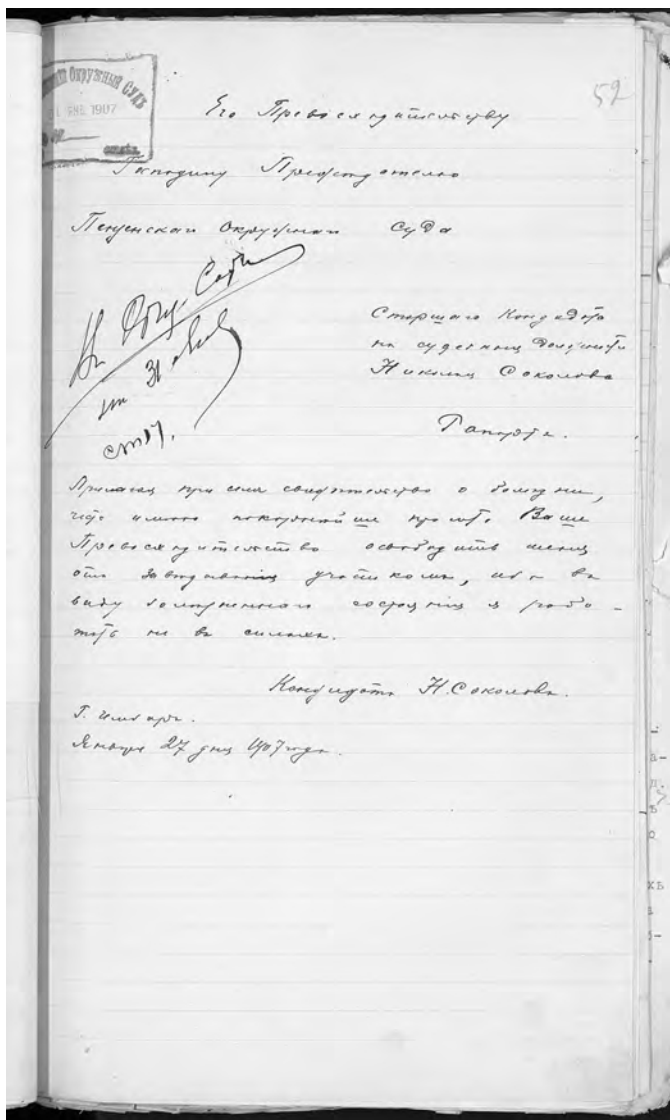 Окружный Судъ
ЯНВ. 1907
52
Его Превосходительству
Господину Председателю
Пензенскаго Окружнаго Суда
Въ Общ. Собр.
на 31 янв.
Старшаго Кандидата
на судебныя должности
Николая Соколова
Рапортъ.
Прилагая при семъ свидѣтельство о болѣзни,
честь имѣю покорнѣйше просить Ваше
Превосходительство освободить меня
отъ завѣдыванія участкомъ, ибо въ
виду болѣзненнаго состоянія я рабо-
тать не въ силахъ.
Кандидатъ Н. Соколовъ.
Г. Чембаръ.
Января 27 дня 1907 года.